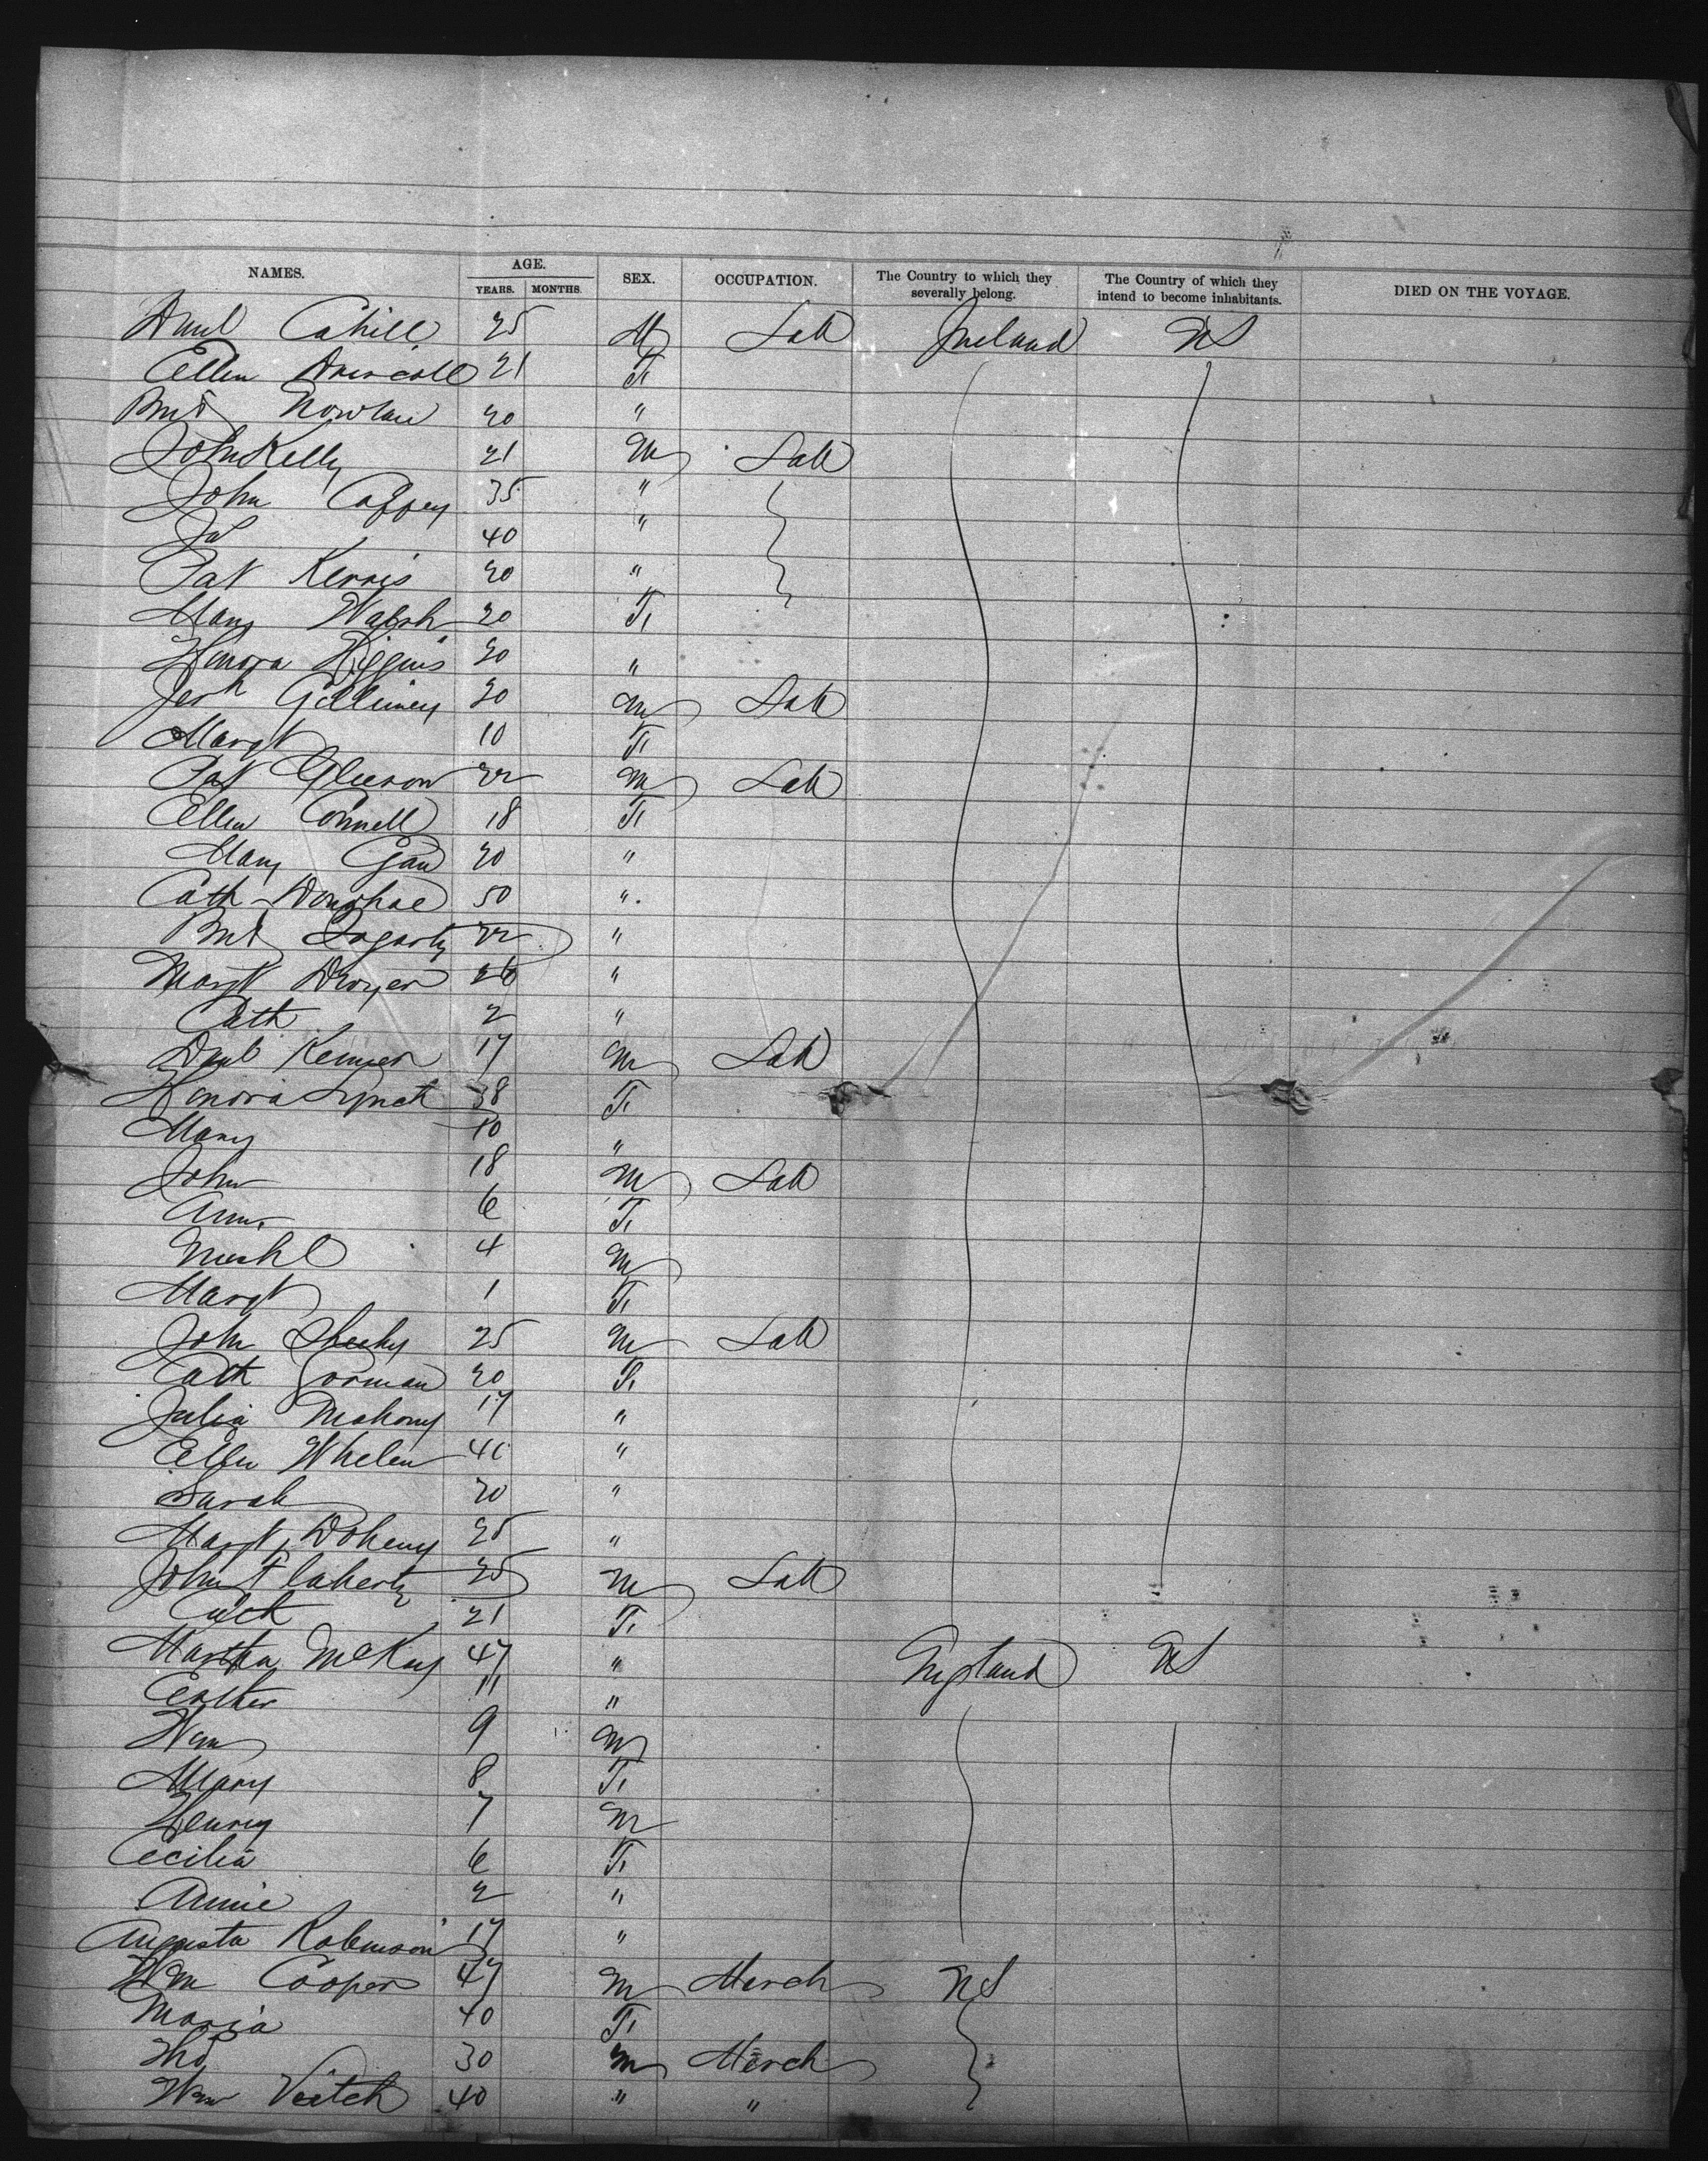 NAMES. AGE. YEARS. MONTHS. SEX. OCCUPATION. The Country to which they severally belong. The Country of which they intend to become inhabitants. DIED ON THE VOYAGE.
Danl Cahill 25 M Lab Ireland US
Ellen Driscoll 21 F
Brid Nowlan 20 "
John Kelly 21 M Lab
John Caffey 35 "
Ja 40 "
Pat Kerris 20 "
Mary Walsh 20 F
Honora Higgins 20 "
Jerh 20 M Lab
Margt 10 F
Pat Gleeson 22 M Lab
Ellen Connell 18 F
Mary Egan 20 "
Cath Donohoe 50 "
Brid Fogarty 22 "
Margt Dwyer 26 "
Cath 2 "
Danl 17 M Lab
Honora Lynch 38 F
Mary 10 "
John 18 M Lab
Ann 6 F
Michl 4 M
Margt 1 F
John Sheehy 25 M Lab
Cath Gorman 20 F
Julia Mahony 17 "
Ellen Whelan 41 "
Sarah 20 "
Margt Doheny 25 "
John Flaherty 25 M Lab
Cath 21 F
Martha McKay 47 " England US
Esther 11 "
Wm 9 M
Mary 8 F
Henry 7 M
Cecilia 6 F
Annie 2 "
Augusta Robinson 17 "
Wm Cooper 47 M Merch US
Maria 40 F
Tho 30 M Merch
Wm Veitch 40 " "